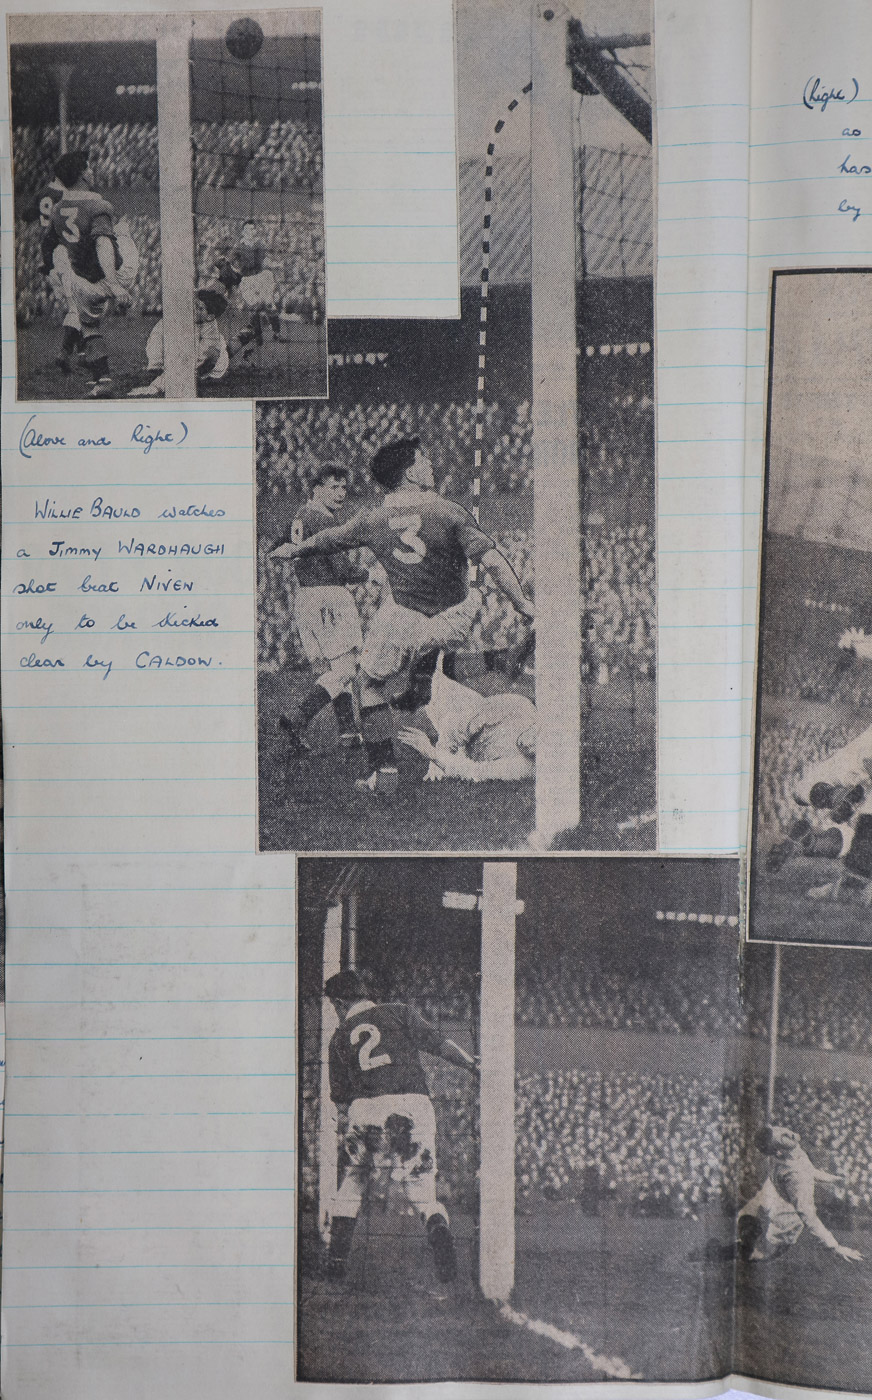 (Above and Right)
WILLIE BAULD watches
a Jimmy WARDHAUGH
shot beat NIVEN
only to be kicked
clear by CALDOW.
(Right)
as
has
by
9
3
9
3
2